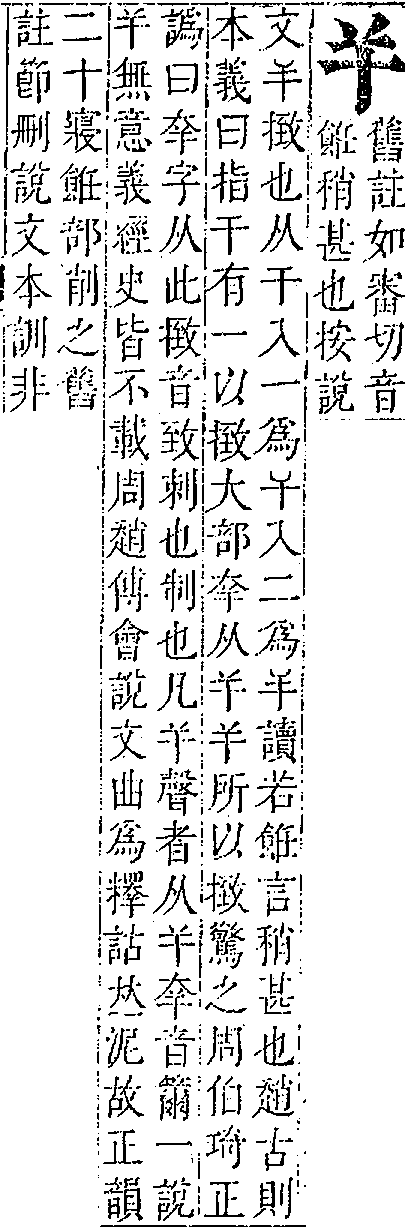 𢆉
舊註如審切音
飪稍甚也按說
文𢆉𢴭也从干入一爲干入二爲𢆉讀若飪言稍甚也趙古則
本義曰指干有一以𢴭大部㚔从𢆉𢆉所以𢴭驚之周伯琦正
譌曰㚔字从此𢴭音致刺也制也凡𢆉聲者从𢆉㚔音籋一說
𢆉無意義經史皆不載周趙傅會說文曲爲擇詁𠀤泥故正韻
二十寢飪部削之舊
註節刪說文本訓非